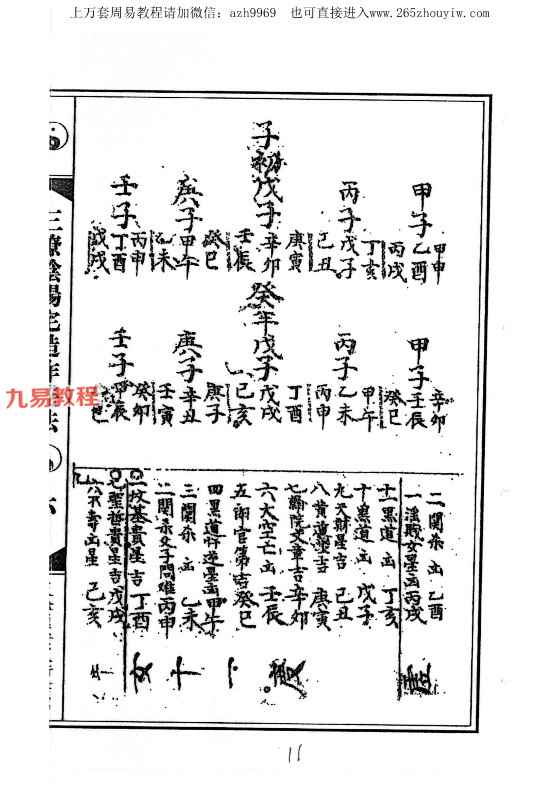 上万套周易教程请加微信：azh9969　也可直接进入www.265zhouyiw.com
甲子
甲申
乙酉
丙戌
丙子
丁亥
戊子
己丑
子
戊子
庚寅
辛卯
壬辰
庚子
癸巳
甲午
乙未
壬子
丙申
丁酉
戊戌
甲子
辛卯
壬辰
癸巳
丙子
甲午
乙未
丙申
癸年戊子
丁酉
戊戌
己亥
庚子
庚子
辛丑
壬寅
壬子
癸卯
甲辰
二關杀凶乙酉
一淫賎女星凶丙戌
十一黑道凶丁亥
十黑道凶戊子
九天財星吉己丑
八黄道星吉庚寅
七翰院文章吉辛卯
六大空亡凶壬辰
五郎官第吉癸巳
四黑道忤逆星凶甲午
三關杀凶乙未
二關杀父子問难丙申
一坟基貴星吉丁酉
聖哲貴星吉戊戌
六不壽凶星己亥
虚
女
三僚陰陽宅造作
九易教程
11